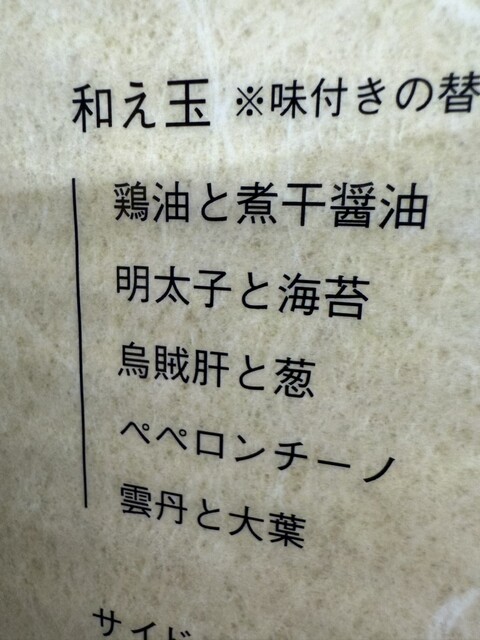 和え玉 ※味付きの替
鶏油と煮干醤油
明太子と海苔
烏賊肝と葱
ペペロンチーノ
雲丹と大葉
サイド